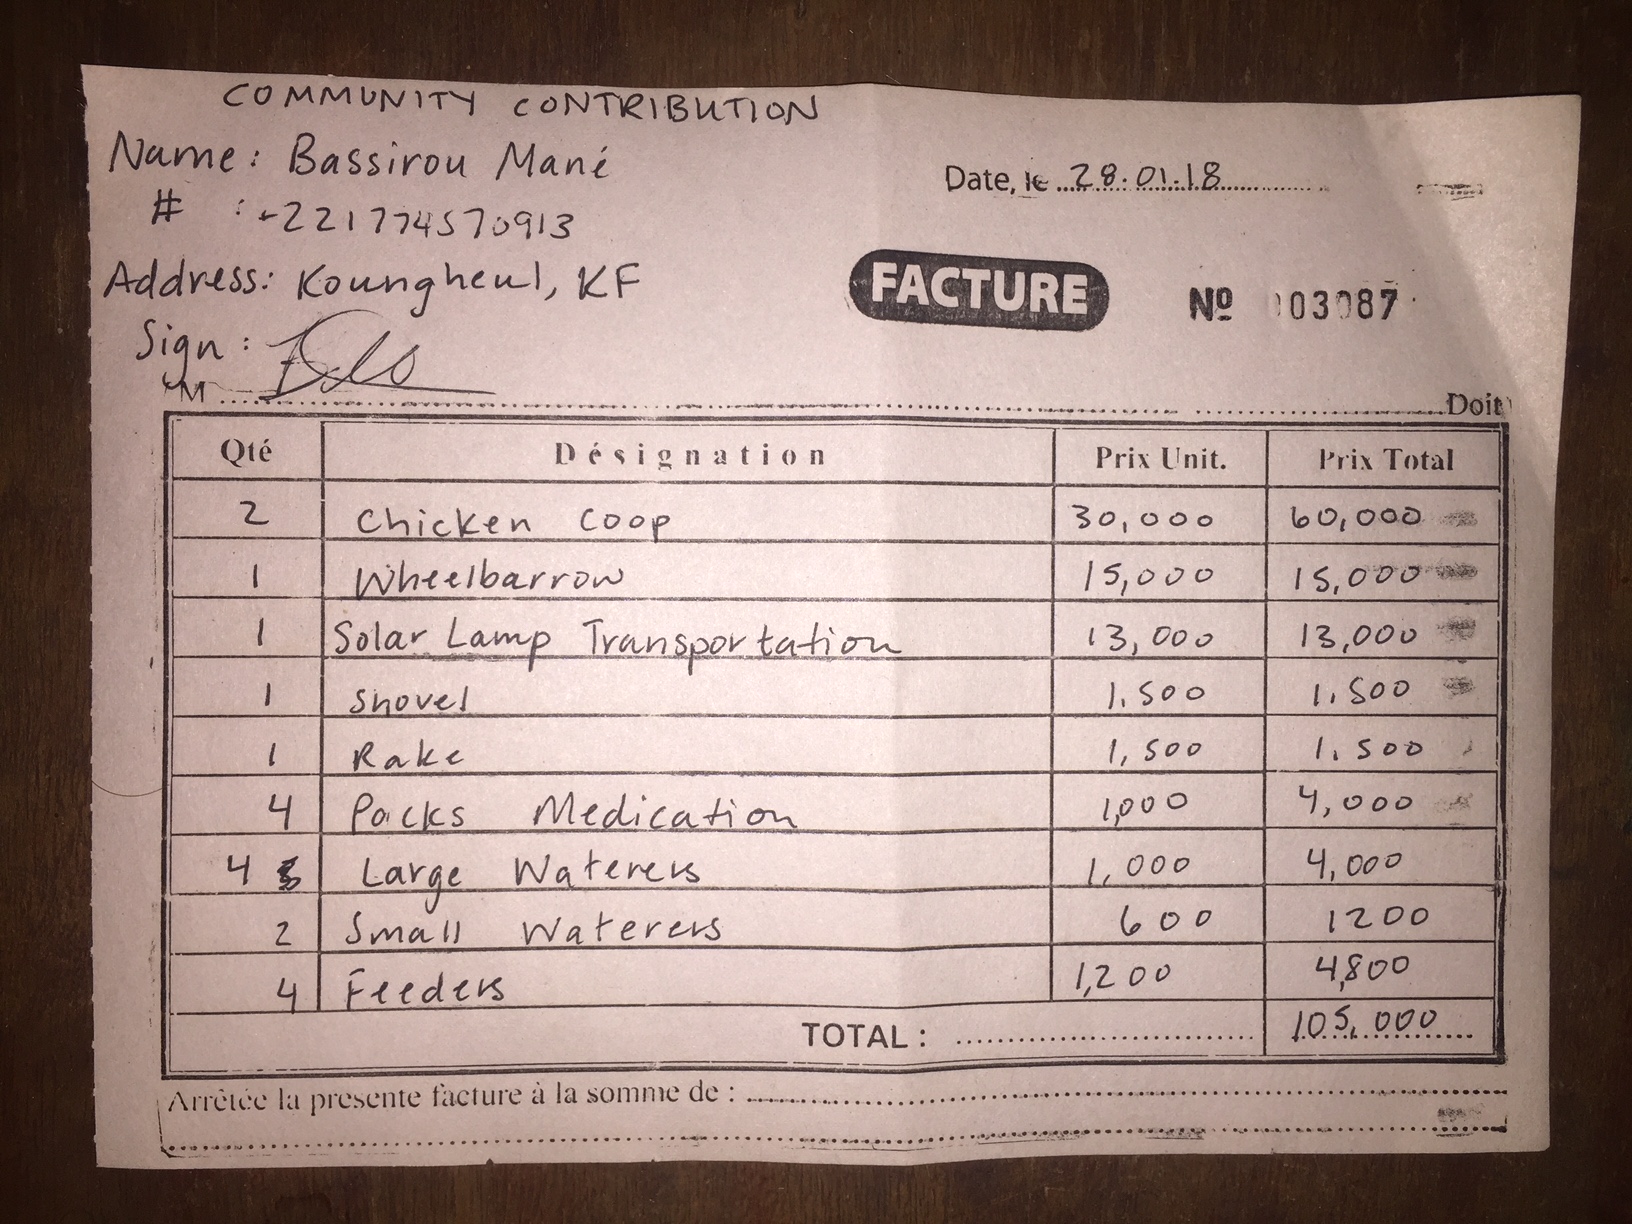 COMMUNITY CONTRIBUTION
Name: Bassirou Mané
Date, le 28.01.18
# : +221774570913
Address: Koungheul, KF
FACTURE
Nº 003087
Sign:
M Doit
Qté Désignation Prix Unit. Prix Total
2 Chicken Coop 30,000 60,000
1 Wheelbarrow 15,000 15,000
1 Solar Lamp Transportation 13,000 13,000
1 Shovel 1,500 1,500
1 Rake 1,500 1,500
4 Packs Medication 1,000 4,000
4 Large Waterers 1,000 4,000
2 Small Waterers 600 1200
4 Feeders 1,200 4,800
TOTAL : 105,000
Arrêtée la presente facture à la somme de :